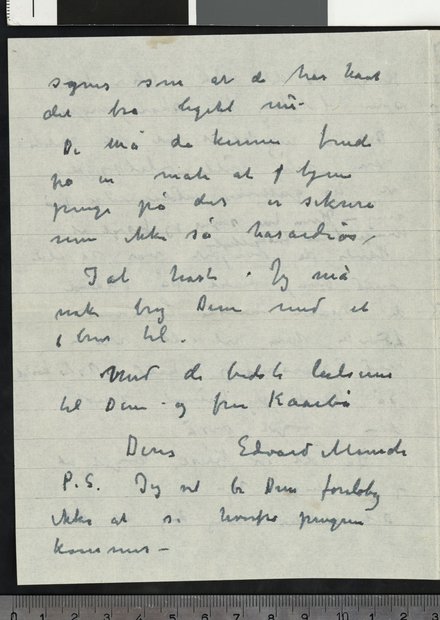 synes som at de har havt
det bra ligell nu –
De må da kunne finde
på en måte at tjene
penge på det er sikrere
som ikke så hasardiøs,
I al hast. Jeg må
nok Dem med et
brev til.
Med de bedste hilsener
til Dem og fru Kaarbø
Deres Edvard Munch
P.S. Jeg vil be Dem foreløbig
ikke at si hvorfra pengene
kommer –